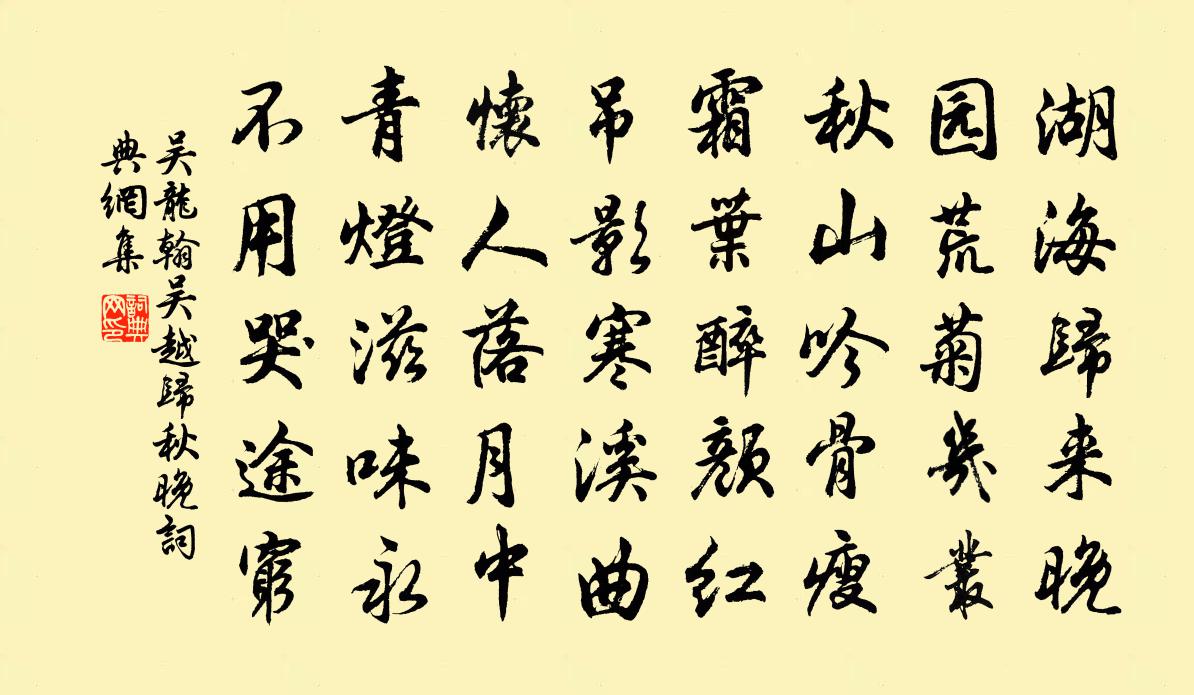 湖海歸来晚
园荒菊幾叢
秋山吟骨瘦
霜葉醉顏红
吊影寒溪曲
懷人落月中
青燈滋味永
不用哭途窮
吴龍翰吴越歸秋晚詞
典網集
詞典
网印